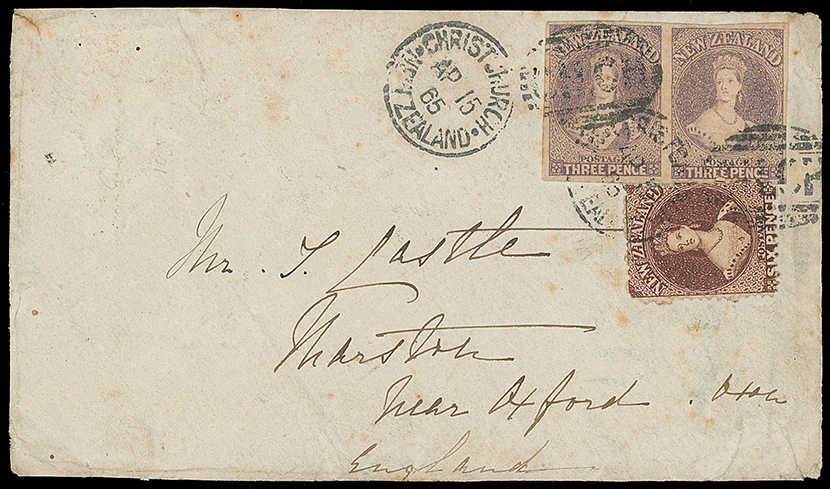 CHRISTCHURCH
AP 15
65
NEW ZEALAND
NEW ZEALAND
POSTAGE
THREE PENCE
NEW ZEALAND
POSTAGE
THREE PENCE
NEW ZEALAND
POSTAGE
SIX PENCE
Mr. T. Castle
Marston
Near Oxford. Oxon
England